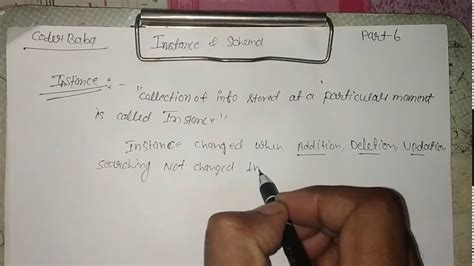 Coder Baba
Instance & Schema
Part-6
Instance :- "collection of info stored at a particular moment
is called Instance"
Instance changed when Addition, Deletion, Updation
searching Not changed In